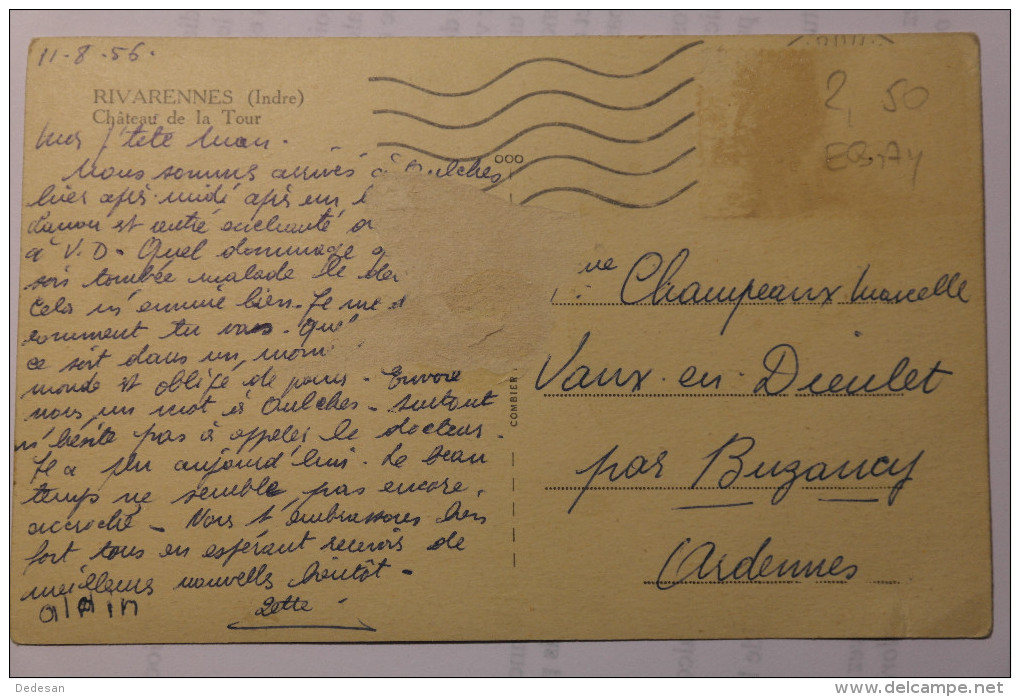 11-8-56.
RIVARENNES (Indre)
Château de la Tour
2,50
Nous sommes arrivés à Oulches
hier après-midi après un
est enchanté
à V.D- Quel dommage
sois tombée malade le
Cela m'ennuie bien. Je me
comment tu vas. Quel
ce soit dans un mom
monde est obligé de partir. Envoie
nous un mot à Oulches. Surtout
n'hésite pas à appeler le docteur.
Il a plu aujourd'hui. Le beau
temps ne semble pas encore
accroché. Nous t'embrassons bien
fort tous en espérant recevoir de
meilleures nouvelles bientôt.
Zette
alain
COMBIER
Champeaux Marcelle
Vaux-en-Dieulet
par Buzancy
Ardennes
Dedesan
www.delcampe.net